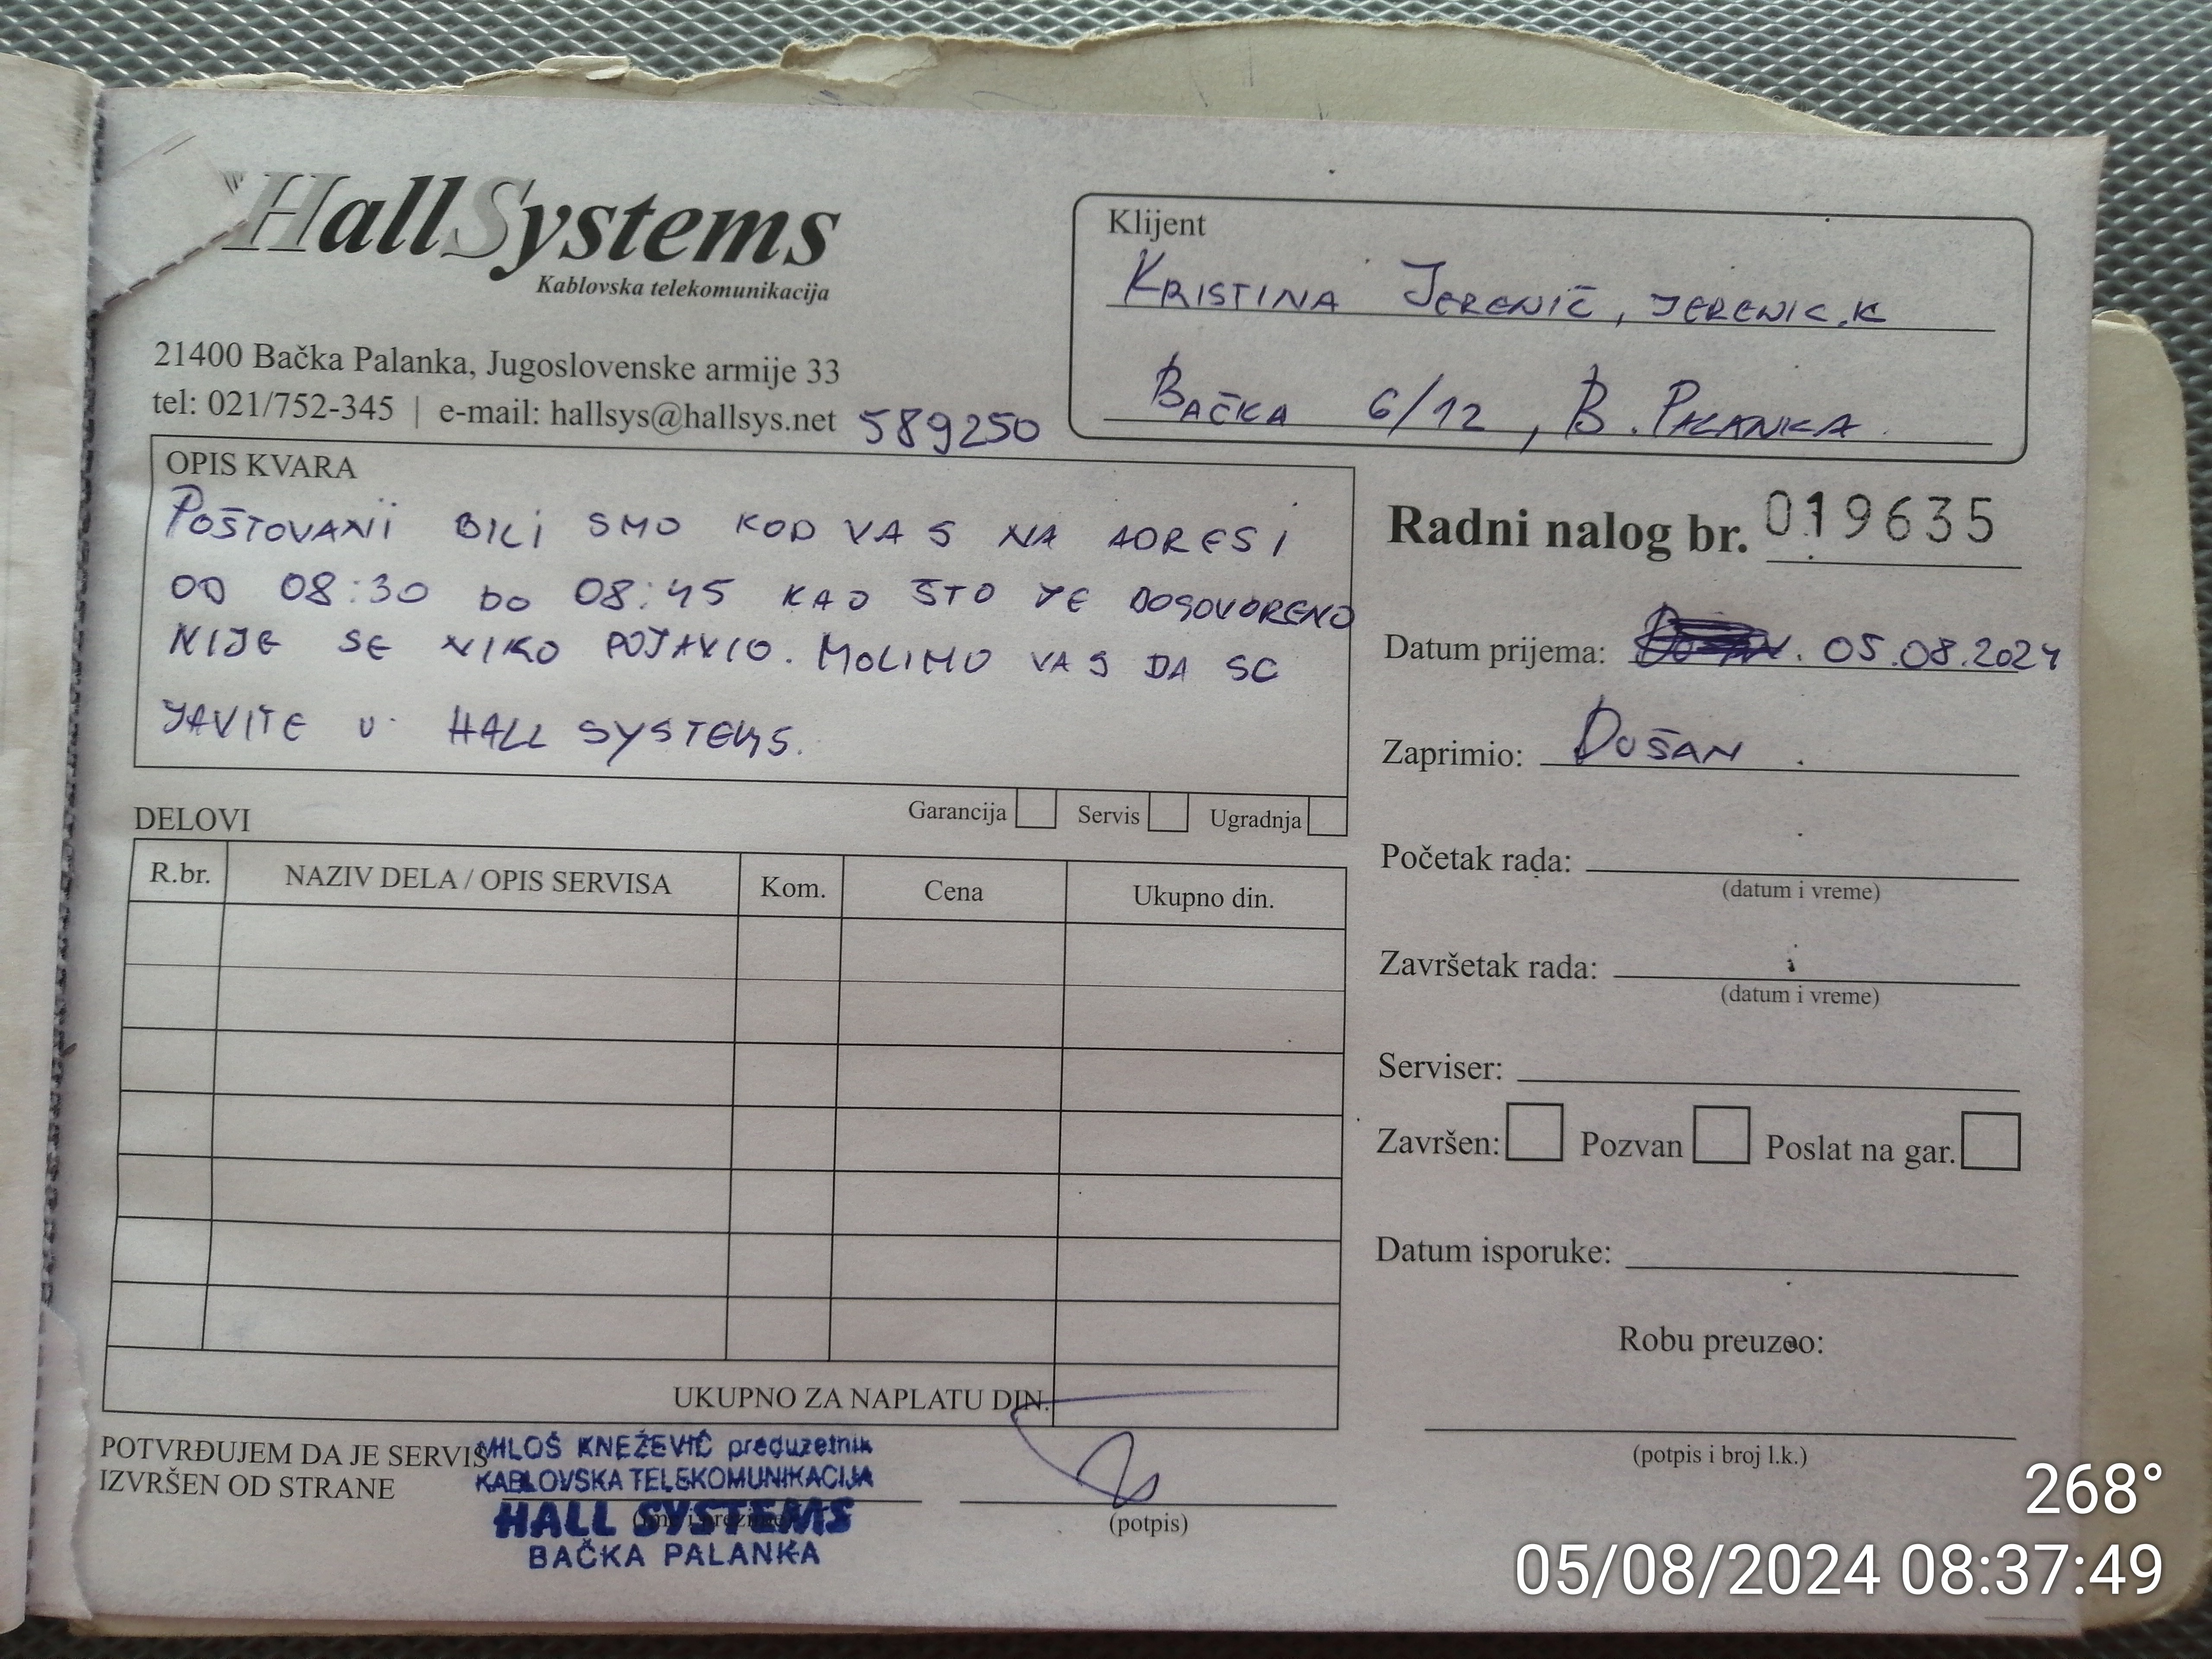 HallSystems
Kablovska telekomunikacija
21400 Bačka Palanka, Jugoslovenske armije 33
tel: 021/752-345 | e-mail: hallsys@hallsys.net 589250
Klijent
KRISTINA JERENIĆ, JERENIC.K
BAČKA 6/12, B. PALANKA
OPIS KVARA
POŠTOVANI BILI SMO KOD VAS NA ADRESI
OD 08:30 DO 08:45 KAO ŠTO JE DOGOVORENO
NIJE SE NIKO POJAVIO. MOLIMO VAS DA SE
JAVITE U HALL SYSTEMS.
Garancija Servis Ugradnja
Radni nalog br. 019635
Datum prijema: 05.08.2024
Zaprimio: DUŠAN
Početak rada:
(datum i vreme)
Završetak rada:
(datum i vreme)
Serviser:
Završen: Pozvan Poslat na gar.
Datum isporuke:
Robu preuzeo:
(potpis i broj l.k.)
DELOVI
R.br. NAZIV DELA / OPIS SERVISA Kom. Cena Ukupno din.
UKUPNO ZA NAPLATU DIN.
POTVRĐUJEM DA JE SERVIS
IZVRŠEN OD STRANE
MILOŠ KNEŽEVIĆ preduzetnik
KABLOVSKA TELEKOMUNIKACIJA
HALL SYSTEMS
BAČKA PALANKA
(potpis)
268°
05/08/2024 08:37:49